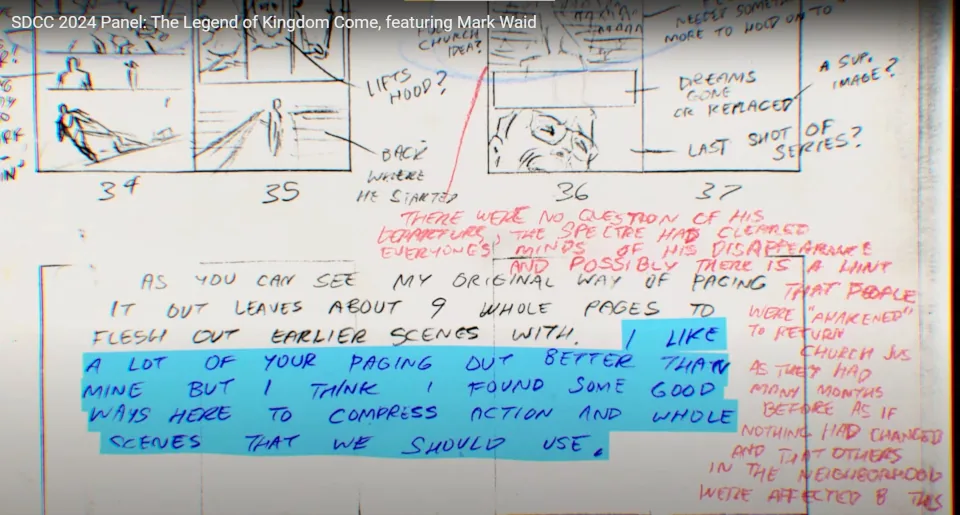 SDCC 2024 Panel: The Legend of Kingdom Come, featuring Mark Waid
CHURCH
IDEA?
NEEDED
MORE TO HOLD ON TO
LIFTS
HOOD?
DREAMS
GONE
OR REPLACED
A SUP.
IMAGE?
BACK
WHERE
HE STARTED
LAST SHOT OF
SERIES?
34
35
36
37
THERE WERE NO QUESTION OF HIS
DEPARTURE, THE SPECTRE HAD CLEARED
EVERYONE'S MINDS OF HIS DISAPPEARANCE
AND POSSIBLY THERE IS A HINT
THAT PEOPLE
WERE "AWAKENED"
TO RETURN
CHURCH JUS
AS THEY HAD
MANY MONTHS
BEFORE AS IF
NOTHING HAD CHANGED
AND THAT OTHERS
IN THE NEIGHBORHOOD
WERE AFFECTED B THIS
AS YOU CAN SEE MY ORIGINAL WAY OF PACING
IT OUT LEAVES ABOUT 9 WHOLE PAGES TO
FLESH OUT EARLIER SCENES WITH. I LIKE
A LOT OF YOUR PAGING OUT BETTER THAN
MINE BUT I THINK I FOUND SOME GOOD
WAYS HERE TO COMPRESS ACTION AND WHOLE
SCENES THAT WE SHOULD USE.